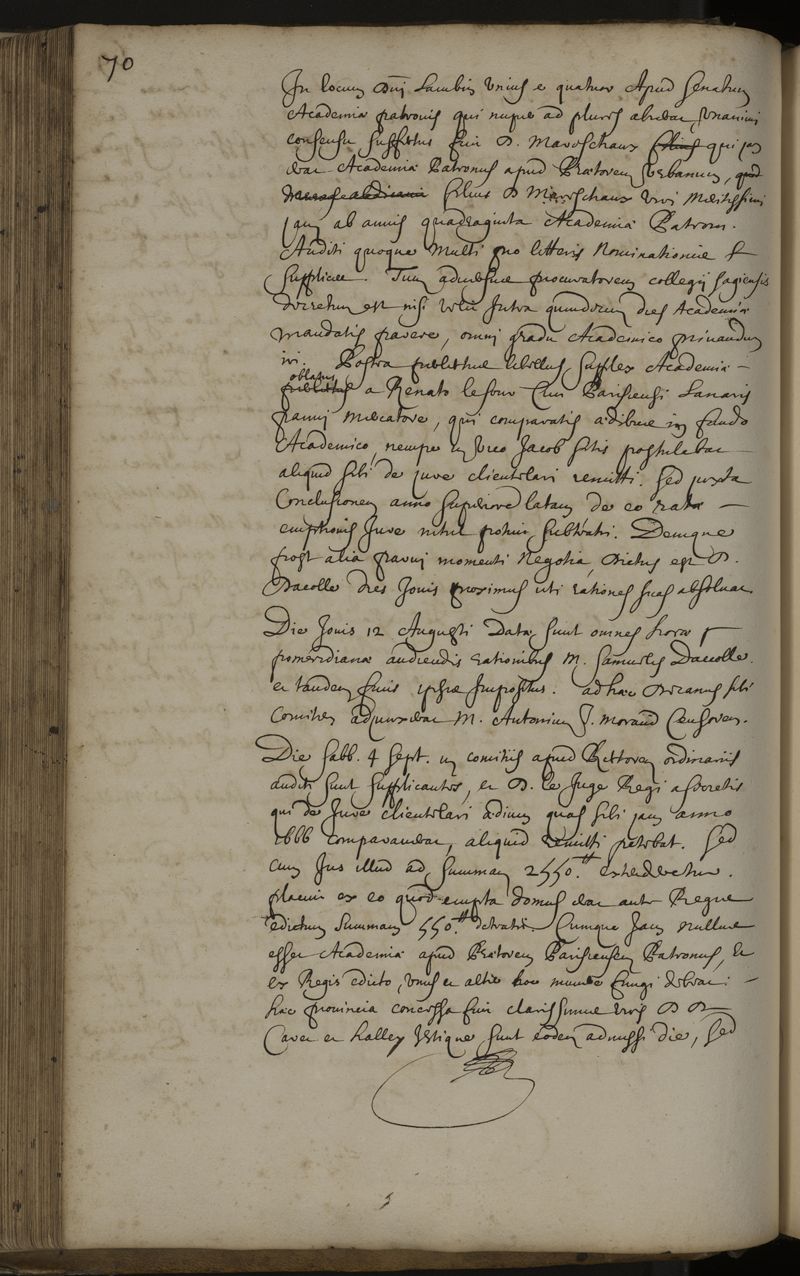 70
In locum Dnj Laubin Vnius e quatuor Apud Senatum
Academiæ patronis qui nuper ad plures abierat, Vnanimi
consensu suffectus fuit D. Mareschaux filius qui jam
erat Academiæ Patronus apud Prætorem Vrbanum, quod
filius D Mareschaux Viri Meritissimi
jam ab annis quadraginta Academiæ Patroni.
Auditi quoque Multi pro litteris Nominationis &
Supplices. Tum adversus procuratorem collegij Sagiensis
Decretum est nisi velit Intra quindecim dies Academiæ
mandatis parere, omni gradu Academico privandum
iri. Postea publicus libellus supplex Academiæ
oblatus
publicus a Renato lesour Cive Parisiensi Lanarij
panni Mercatore, qui comparatis ædibus in feudo
Academico, nempe in vico Jacob sitis postulabat
aliquid sibi de jure clientelari remitti. Sed juxta
Conclusionem anno superiore latam de eo rata
emptionis Jure nihil potuit subtrahi. Denique
post alia parvi momenti Negotia, Dictus est D.
Dacolle dies Jovis proximus uti rationes suas absolvat.
Die Jovis 12 Augusti Datæ sunt omnes horæ
pomeridianæ audiendis rationibus M. Samuelis Dacolle.
et tandem finis ipsis Impositus. ad hæc Decanus sibi
Comitem adjunxerat M. Antonium J. Morand Censorem.
Die Sabb. 4 Sept. in comitiis apud Rectorem ordinariis
auditi sunt supplicantes, et D. le Juge Regi a secretis
qui de Jure clientelari ædium quas sibi jam anno
1666 comparaverat, aliquid remitti petebat. Sed
cum Jus illud ad Summam 2550.tt extenderetur.
placuit ex eo quod empta domus erat ante Regis
edictum Summam 550.tt detrahi. Cumque Jam nullus
esset Academiæ apud Prætorem Parisiensem Patronus, et
ex Regis edicto, Vnus et alter hoc munere fungi deberet:
hæc provincia concessa fuit clarissimis viris D D
Cavet et Halley Vtique sunt eodem admissi die, Sed